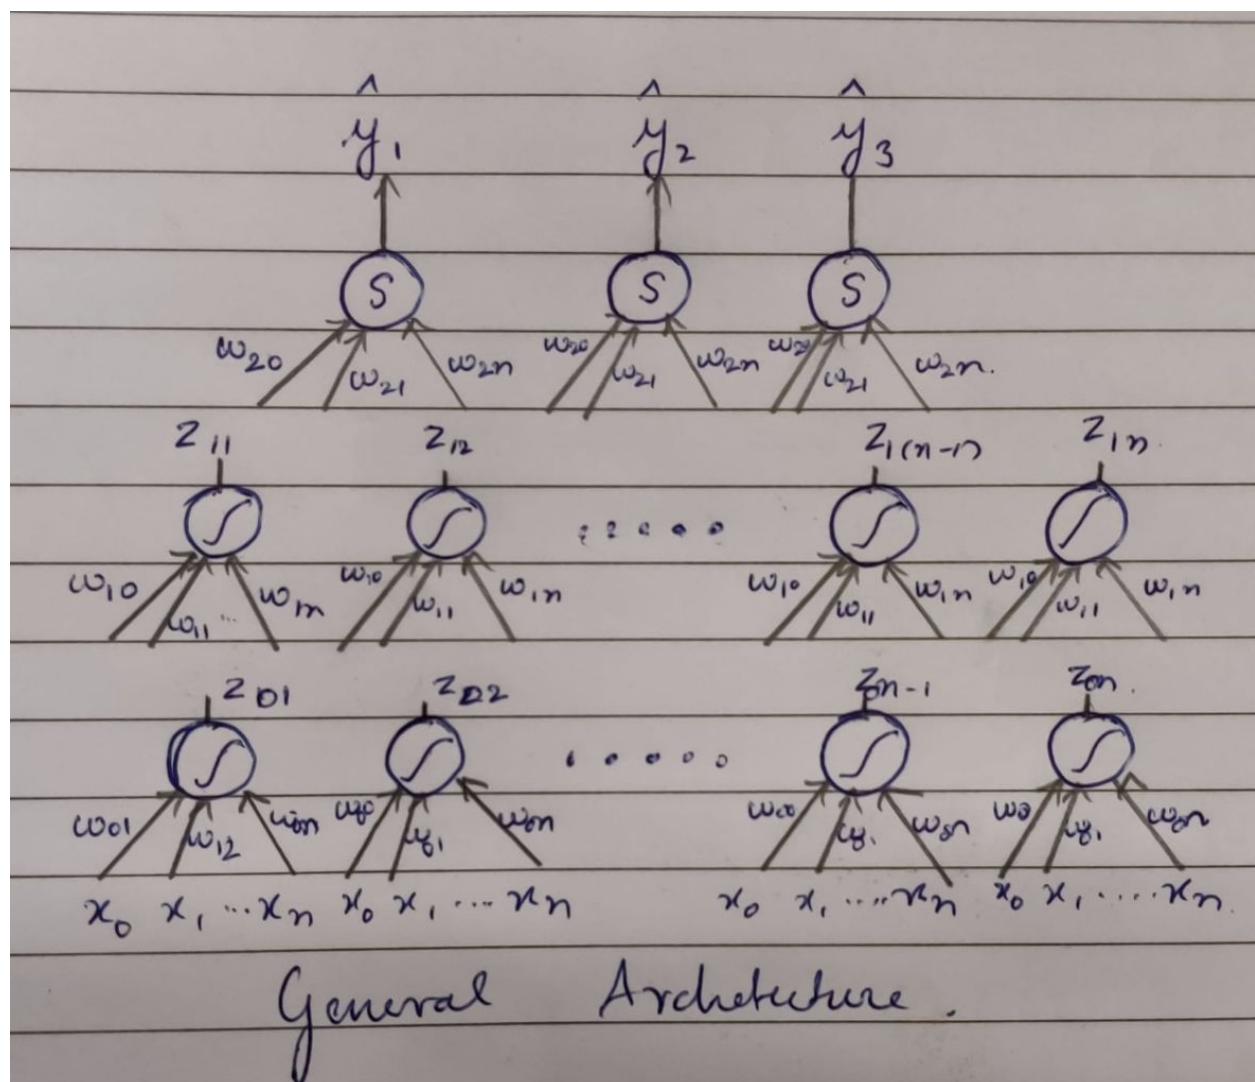 ŷ₁ ŷ₂ ŷ₃
S S S
w₂₀ w₂₁ w₂ₙ w₂₀ w₂₁ w₂ₙ w₂₀ w₂₁ w₂ₙ.
z₁₁ z₁₂ z₁₍ₙ₋₁₎ z₁ₙ.
w₁₀ w₁₁ ... w₁ₙ w₁₀ w₁₁ w₁ₙ w₁₀ w₁₁ w₁ₙ w₁₀ w₁₁ w₁ₙ
z₀₁ z₀₂ z₀ₙ₋₁ z₀ₙ.
w₀₁ w₁₂ w₀ₙ w₀₀ w₀ₙ w₀₀ w₀ₙ w₀ w₀ₙ
x₀ x₁ ... xₙ x₀ x₁ .... xₙ x₀ x₁ ..... xₙ x₀ x₁ ..... xₙ.
General Archetecture.